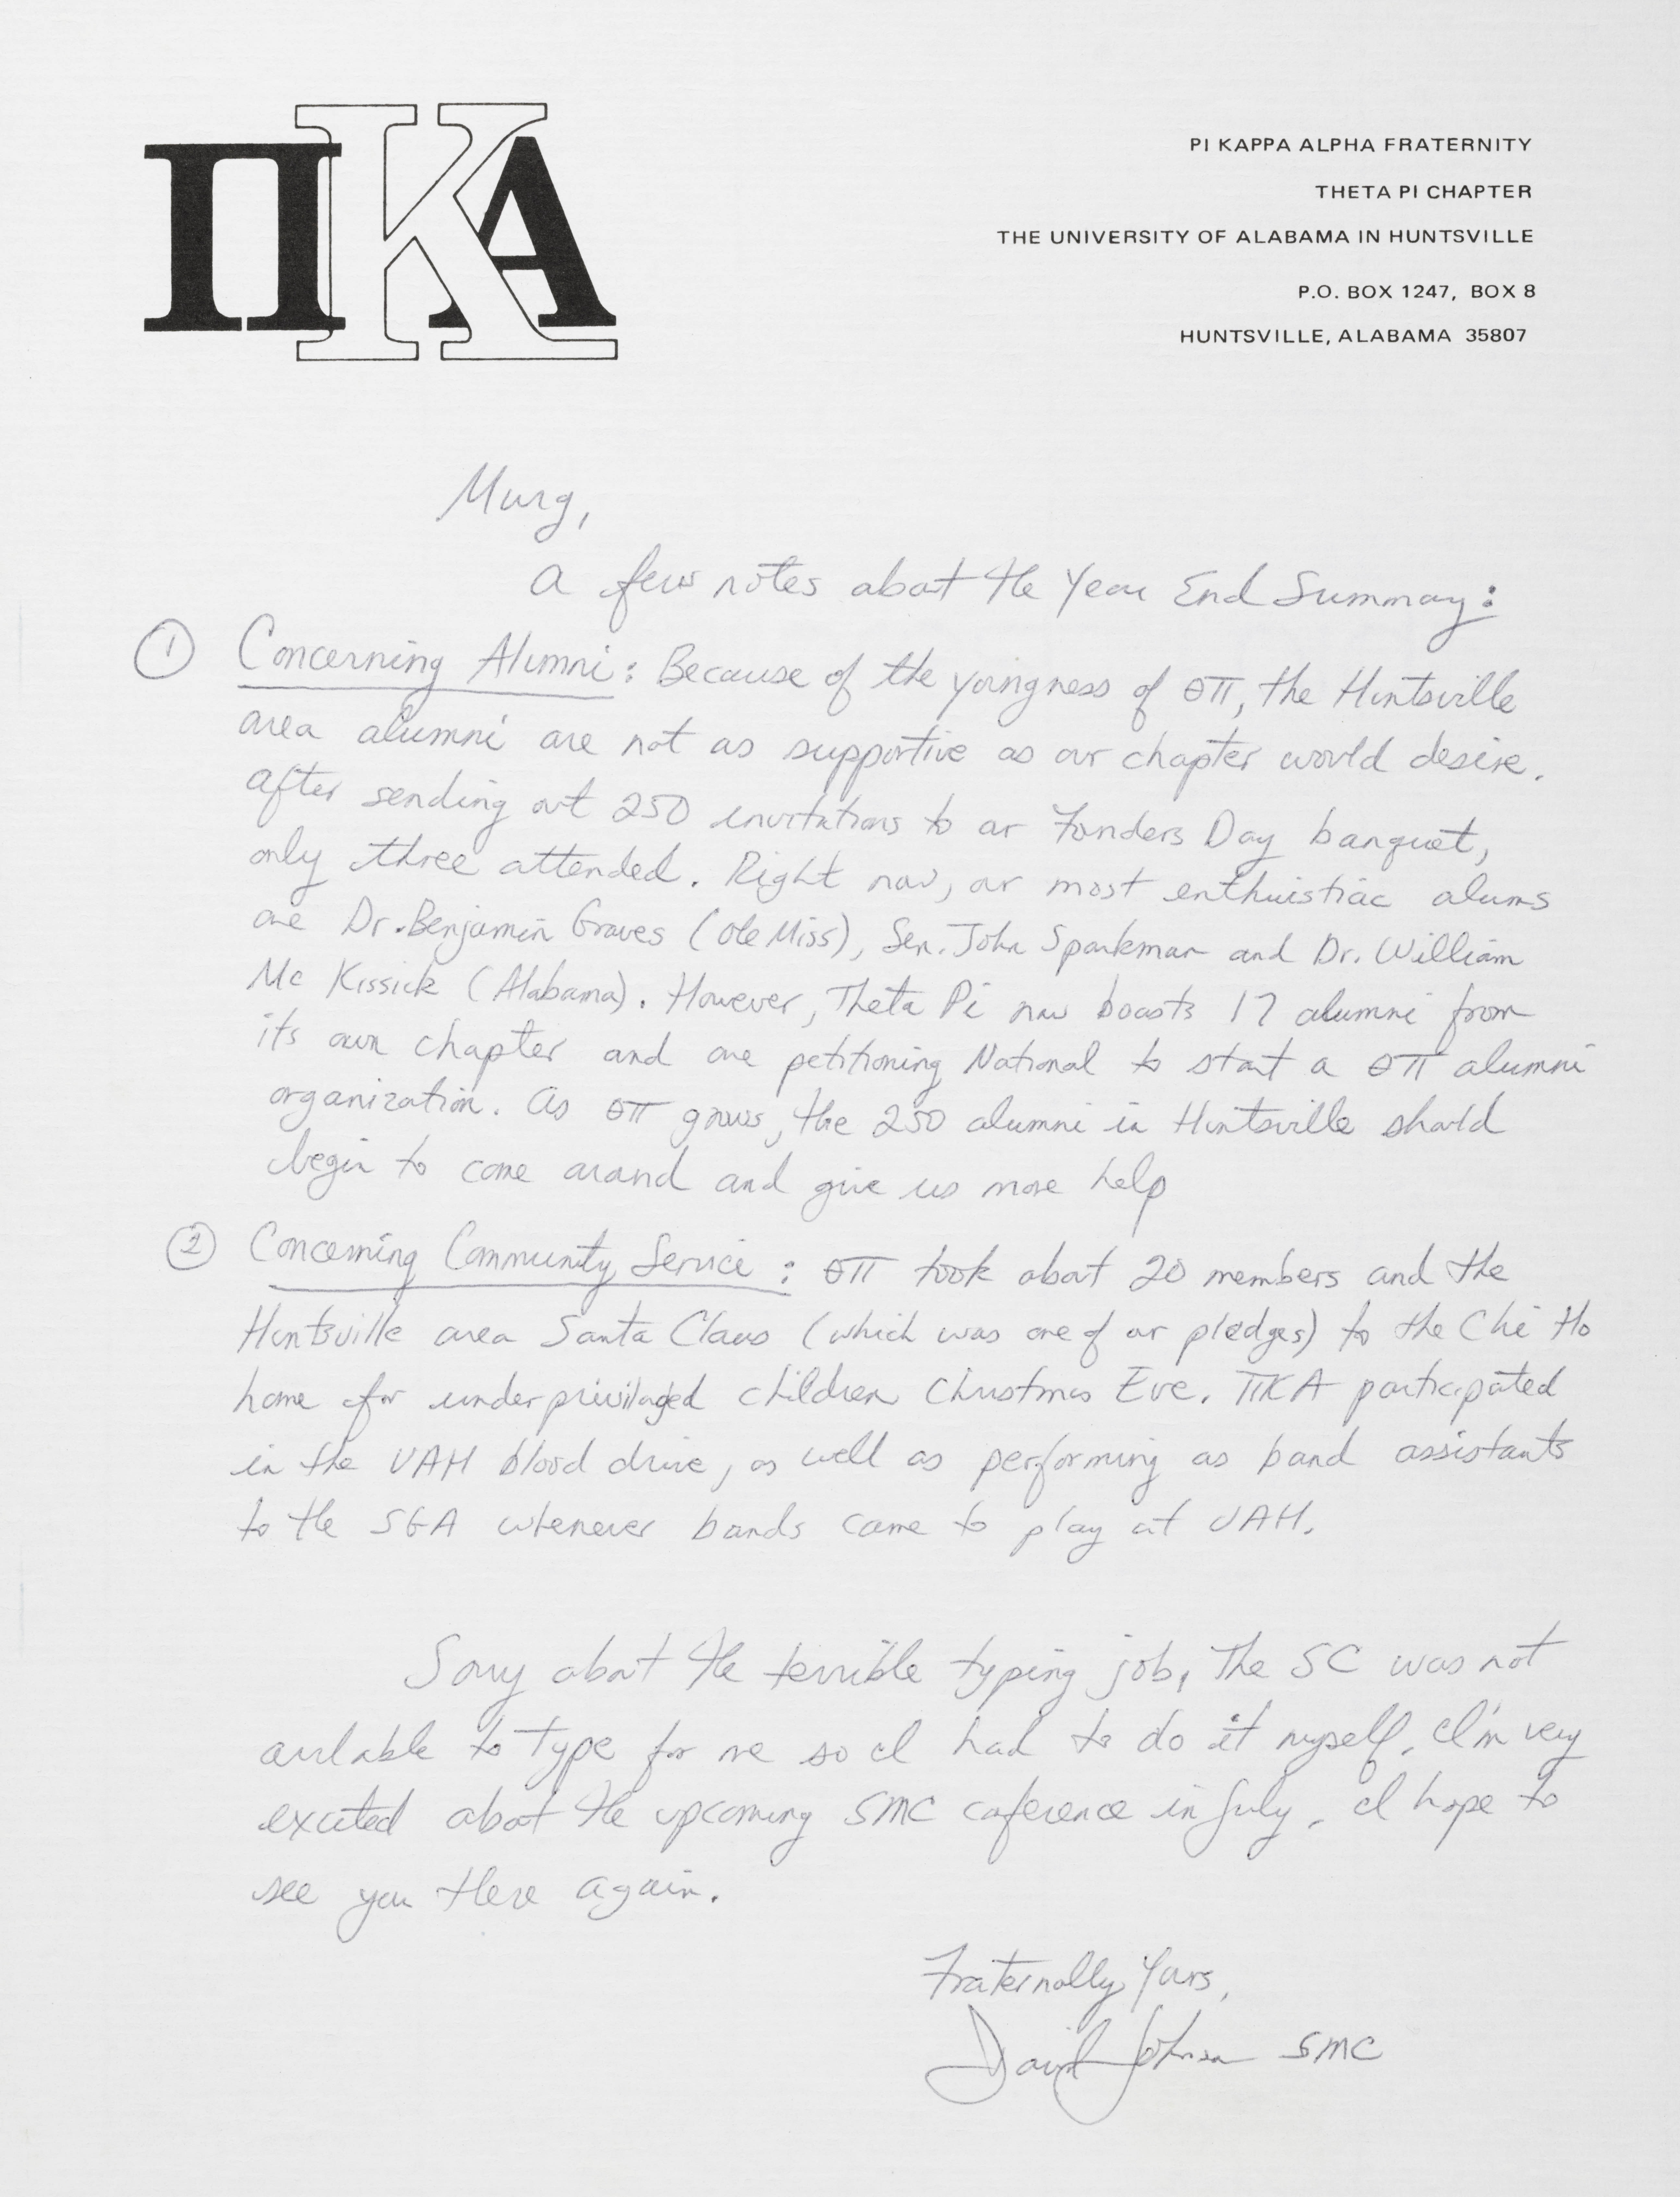 ΠKA
PI KAPPA ALPHA FRATERNITY
THETA PI CHAPTER
THE UNIVERSITY OF ALABAMA IN HUNTSVILLE
P.O. BOX 1247, BOX 8
HUNTSVILLE, ALABAMA 35807
Murg,
A few notes about the Year End Summary:
① Concerning Alumni: Because of the youngness of ΘΠ, the Huntsville
area alumni are not as supportive as our chapter would desire.
After sending out 250 invitations to our Founders Day banquet,
only three attended. Right now, our most enthuistiac alums
are Dr. Benjamin Graves (Ole Miss), Sen. John Sparkman and Dr. William
McKissick (Alabama). However, Theta Pi now boasts 17 alumni from
its own chapter and are petitioning National to start a ΘΠ alumni
organization. As ΘΠ grows, the 250 alumni in Huntsville should
begin to come around and give us more help
② Concerning Community Service: ΘΠ took about 20 members and the
Huntsville area Santa Claus (which was one of our pledges) to the Chi Ho
home for underprivilaged children Christmas Eve. ΠKA participated
in the UAH blood drive, as well as performing as band assistants
to the SGA whenever bands came to play at UAH.
Sorry about the terrible typing job, the SC was not
available to type for me so I had to do it myself. I'm very
excited about the upcoming SMC conference in July. I hope to
see you there again.
Fraternally Yours,
David Johnson SMC